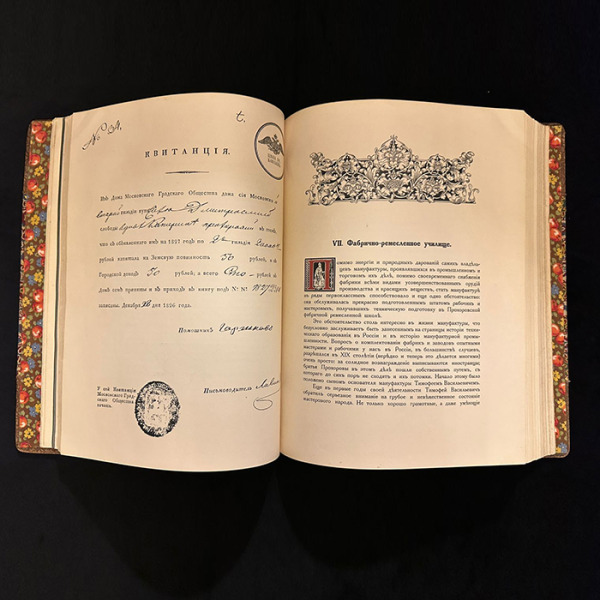 № 34.
КВИТАНЦІЯ.
Изъ Дома Московскаго Градскаго Общества дана сія Московской
гильдіи
слободы
что съ объявленнаго имъ на 1827 годъ по 2й гильдіи
рублей капитала на Земскую повинность 50
Городской доходъ 30 рублей, а всего
денегъ сіе приняты и въ приходъ въ книгу подъ №№
записаны. Декабря дня 1826 года.
Помощникъ
Письмоводитель
У сей Квитанціи
Московскаго Град-
скаго Общества
печать.
VII. Фабрично-ремесленное училище.
помимо энергіи и природныхъ дарованій самихъ владѣль-
цевъ мануфактуры, проявлявшихся въ промышленномъ и
торговомъ ихъ дѣлѣ, помимо своевременнаго снабженія
фабрики всѣми видами усовершенствованныхъ орудій
производства и красящихъ веществъ, стать мануфактурѣ
въ ряды первоклассныхъ способствовало и еще одно обстоятельство:
она обслуживалась прекрасно подготовленнымъ штатомъ рабочихъ и
мастеровъ, получавшихъ техническую подготовку въ Прохоровской
фабричной ремесленной школѣ.
Это обстоятельство столь интересно въ жизни мануфактуры, что
безусловно заслуживаетъ быть занесеннымъ на страницы исторіи техни-
ческаго образованія въ Россіи и въ исторію мануфактурной промыш-
ленности. Вопросъ о комплектованіи фабрикъ и заводовъ опытными
мастерами и рабочими у насъ въ Россіи, въ большинствѣ случаевъ,
разрѣшался въ XIX столѣтіи (нерѣдко и теперь это дѣлается многими)
очень просто: за солидное вознагражденіе нанимаются иностранцы.
Братья Прохоровы въ этомъ дѣлѣ пошли собственнымъ путемъ, съ
котораго до сихъ поръ не сходятъ и ихъ потомки. Начало этому было
положено сыномъ основателя мануфактуры Тимофеемъ Васильевичемъ.
Еще въ первые годы своей дѣятельности Тимофей Васильевичъ
обратилъ серьезное вниманіе на грубое и невѣжественное состояніе
мастерового народа. Не только хорошо грамотные, а даже умѣющіе